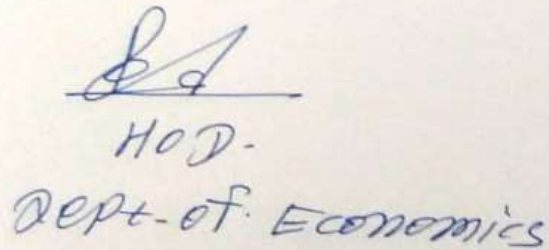 HOD.
Dept. of. Economics